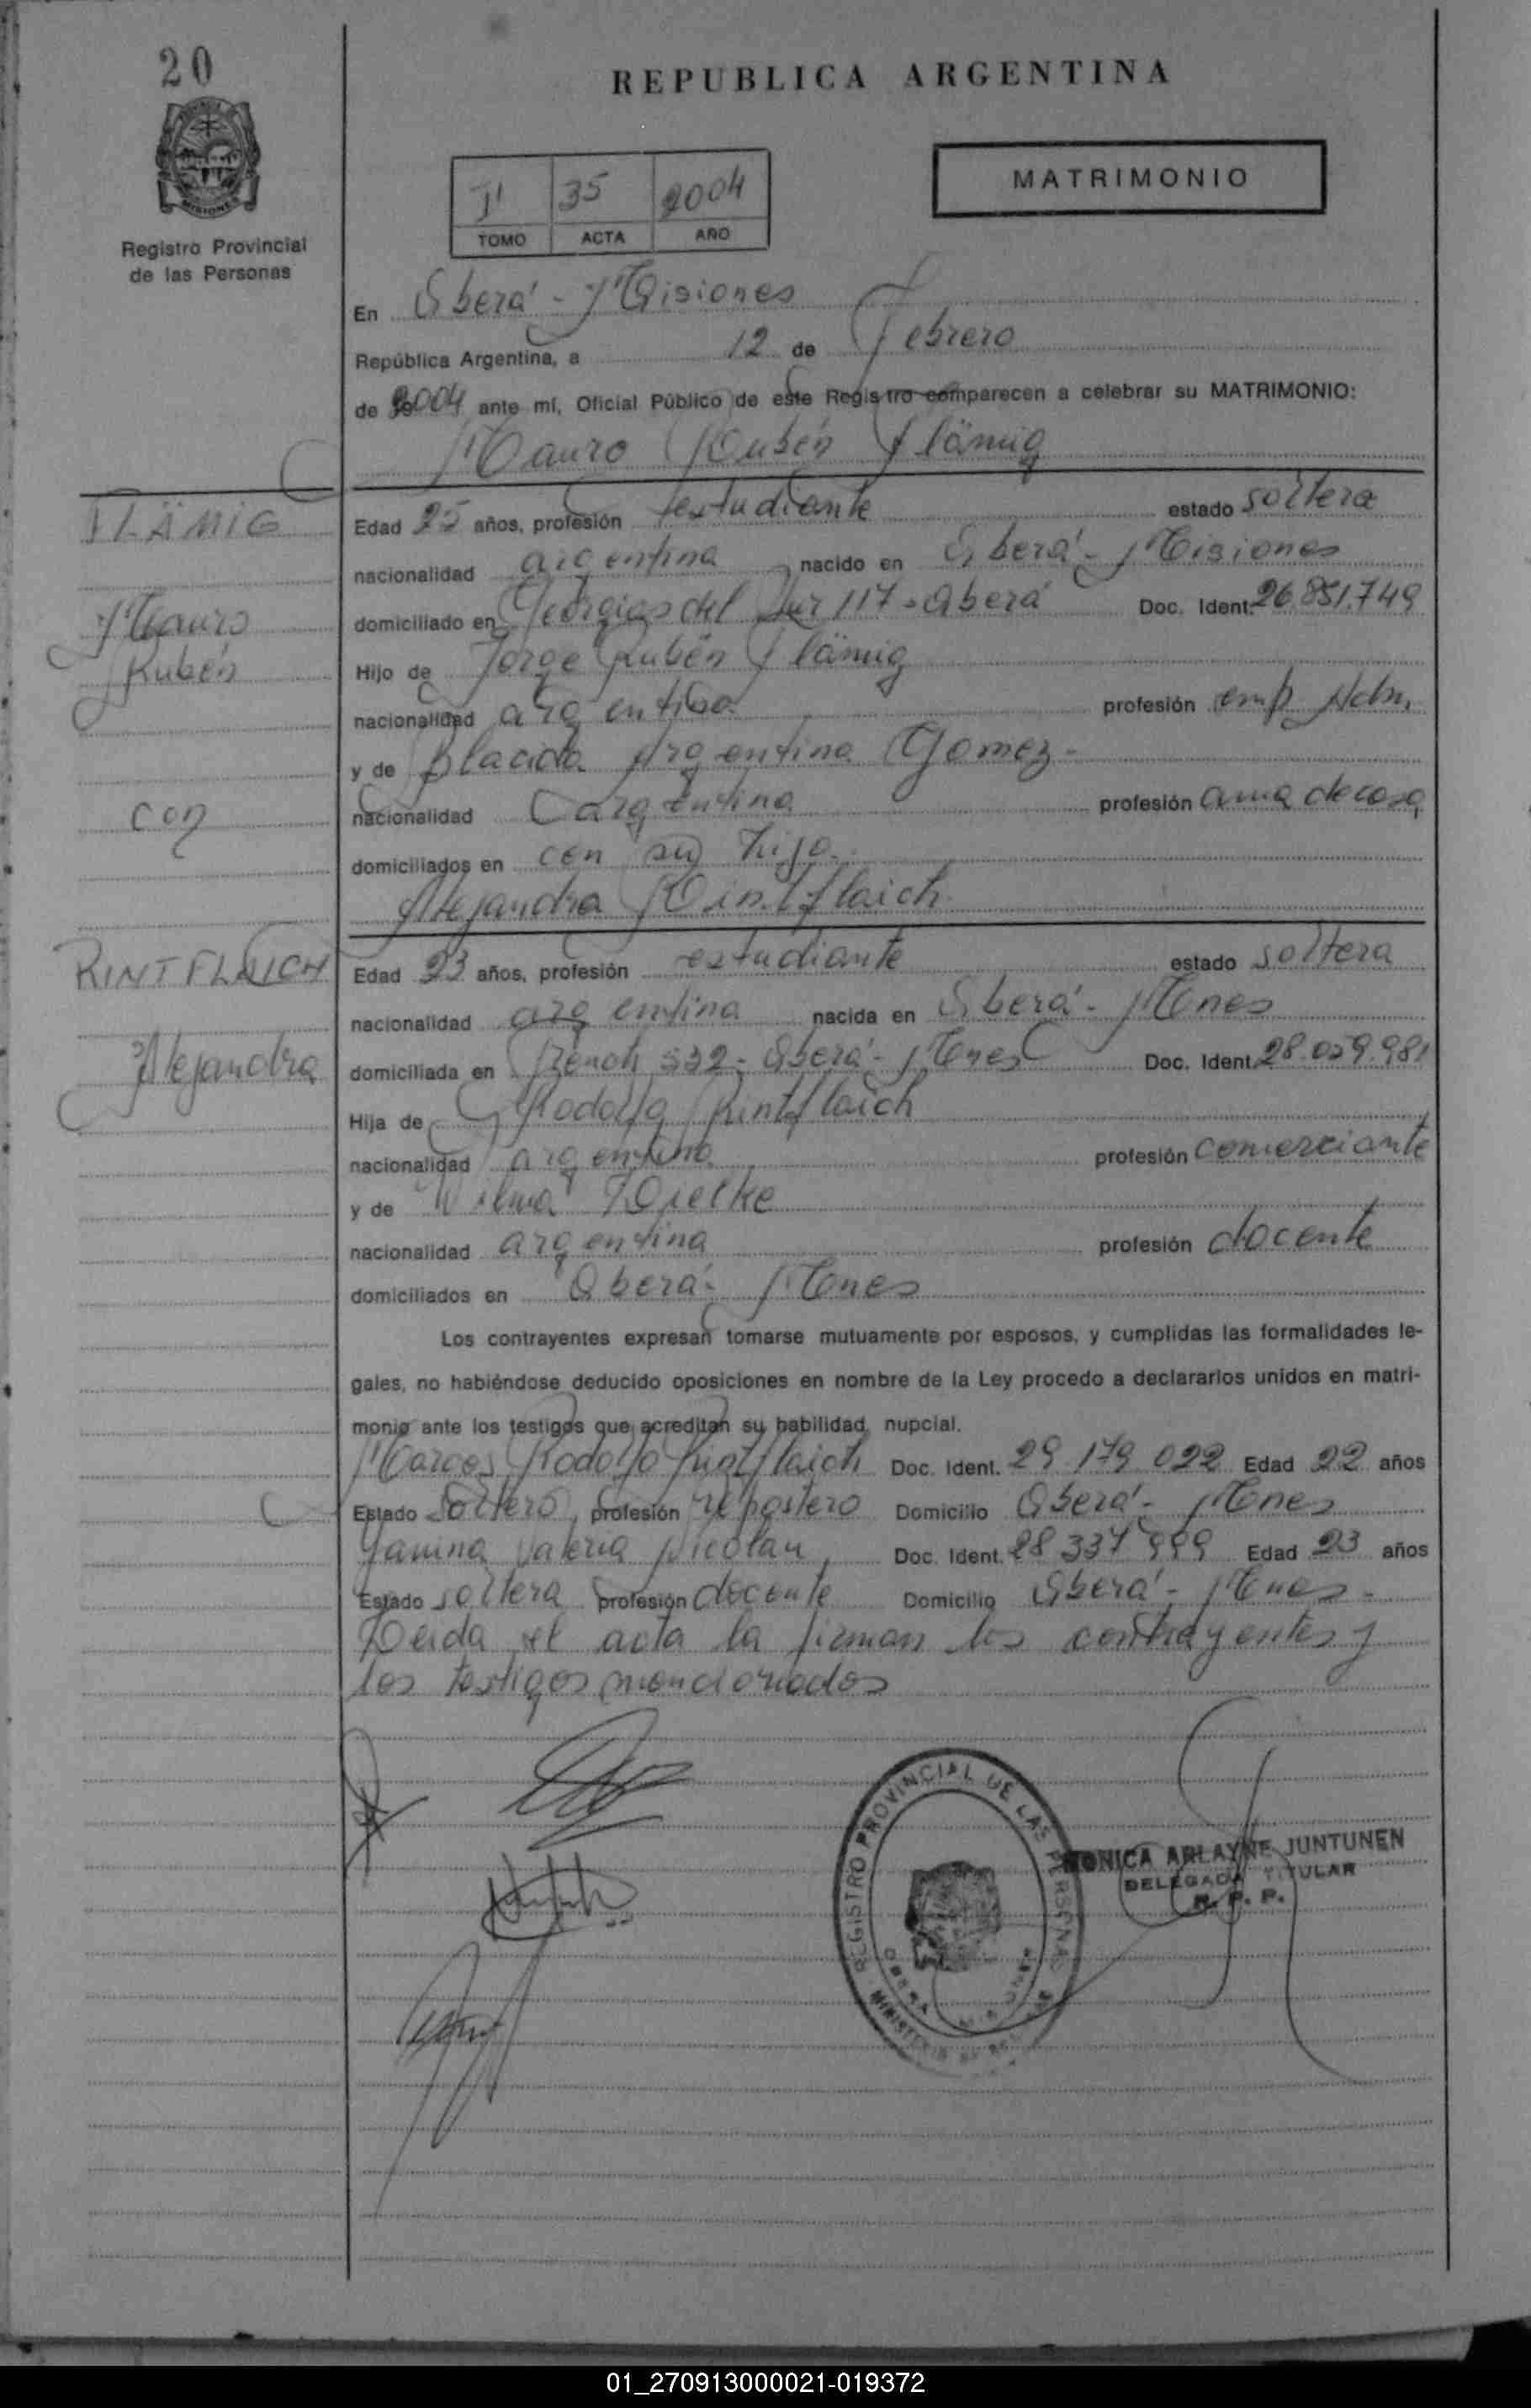 20
REPUBLICA ARGENTINA
MATRIMONIO
35 2004
TOMO ACTA AÑO
MISIONES
Registro Provincial
de las Personas
En Oberá - Misiones
República Argentina, a 12 de Febrero
de 2004 ante mí, Oficial Público de este Registro comparecen a celebrar su MATRIMONIO:
Mauro Rubén Flämig
FLÄMIG
Mauro
Rubén
con
RINTFLAICH
Alejandra
Edad 25 años, profesión estudiante estado soltero
nacionalidad argentina nacido en Oberá - Misiones
domiciliado en Georgias del Sur 117 - Oberá Doc. Ident. 26.851.749
Hijo de Jorge Rubén Flämig
nacionalidad argentino profesión emp. Adm.
y de Placida Argentina Gomez -
nacionalidad argentina profesión ama de casa
domiciliados en con su hijo.
Alejandra Rintflaich
Edad 23 años, profesión estudiante estado soltera
nacionalidad argentina nacida en Oberá - Mnes
domiciliada en French 532 - Oberá - Mnes Doc. Ident. 28.059.981
Hija de Rodolfo Rintflaich
nacionalidad argentino profesión comerciante
y de Vilma
nacionalidad argentina profesión docente
domiciliados en Oberá - Mnes
Los contrayentes expresan tomarse mutuamente por esposos, y cumplidas las formalidades le-
gales, no habiéndose deducido oposiciones en nombre de la Ley procedo a declararlos unidos en matri-
monio ante los testigos que acreditan su habilidad nupcial.
Marcos Rodolfo Rintflaich Doc. Ident. 29 179 022 Edad 22 años
Estado soltero, profesión repostero Domicilio Oberá - Mnes
Yanina Valeria Nicolau, Doc. Ident. 28 337 999 Edad 23 años
Estado soltera profesión docente Domicilio Oberá - Mnes -
Leida el acta la firman los contrayentes y
los testigos mencionados
REGISTRO PROVINCIAL DE LAS PERSONAS
MONICA ARLAYNE JUNTUNEN
DELEGADA TITULAR
R. P. P.
01_270913000021-019372